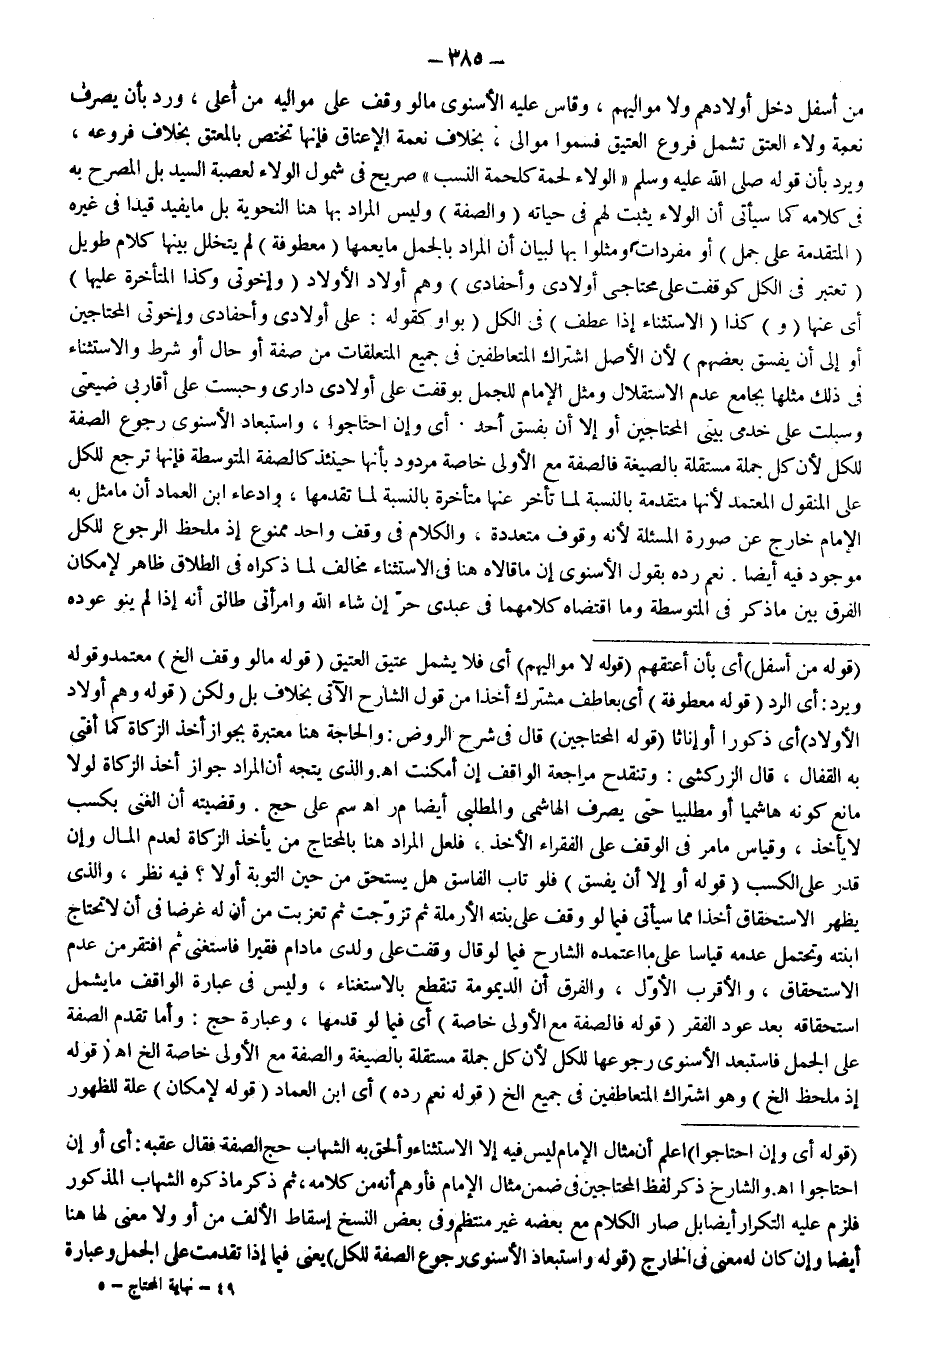 — ٣٨٥ —
من أسفل دخل أولادهم ولا مواليهم ، وقاس عليه الأسنوى مالو وقف على مواليه من أعلى ، ورد بأن يصرف
نعمة ولاء العتق تشمل فروع العتيق فسموا موالى ، بخلاف نعمة الإعتاق فإنها تختص بالمعتق بخلاف فروعه ،
ويرد بأن قوله صلى الله عليه وسلم « الولاء لحمة كلحمة النسب » صريح فى شمول الولاء لعصبة السيد بل المصرح به
فى كلامه كما سيأتى أن الولاء يثبت لهم فى حياته ( والصفة ) وليس المراد بها هنا النحوية بل مايفيد قيدا فى غيره
( المتقدمة على جمل ) أو مفردات ومثلوا بها لبيان أن المراد بالجمل مايعمها ( معطوفة ) لم يتخلل بينها كلام طويل
( تعتبر فى الكل كوقفت على محتاجى أولادى وأحفادى ) وهم أولاد الأولاد ( وإخوتى وكذا المتأخرة عليها )
أى عنها ( و ) كذا ( الاستثناء إذا عطف ) فى الكل ( بواو كقوله : على أولادى وأحفادى وإخوتى المحتاجين
أو إلى أن يفسق بعضهم ) لأن الأصل اشتراك المتعاطفين فى جميع المتعلقات من صفة أو حال أو شرط والاستثناء
فى ذلك مثلها بجامع عدم الاستقلال ومثل الإمام للجمل بوقفت على أولادى دارى وحبست على أقاربى ضيعتى
وسبلت على خدمى بيتى المحتاجين أو إلا أن يفسق أحد . أى وإن احتاجوا ، واستبعاد الأسنوى رجوع الصفة
للكل لأن كل جملة مستقلة بالصيغة فالصفة مع الأولى خاصة مردود بأنها حينئذ كالصفة المتوسطة فإنها ترجع للكل
على المنقول المعتمد لأنها متقدمة بالنسبة لما تأخر عنها متأخرة بالنسبة لما تقدمها ، وادعاء ابن العماد أن مامثل به
الإمام خارج عن صورة المسئلة لأنه وقوف متعددة ، والكلام فى وقف واحد ممنوع إذ ملحظ الرجوع للكل
موجود فيه أيضا . نعم رده بقول الأسنوى إن ماقالاه هنا فى الاستثناء مخالف لما ذكراه فى الطلاق ظاهر لإمكان
الفرق بين ماذكر فى المتوسطة وما اقتضاه كلامهما فى عبدى حرّ إن شاء الله وامرأتى طالق أنه إذا لم ينو عوده
(قوله من أسفل) أى بأن أعتقهم (قوله لا مواليهم) أى فلا يشمل عتيق العتيق ( قوله مالو وقف الخ ) معتمد وقوله
ويرد : أى الرد ( قوله معطوفة ) أى بعاطف مشترك أخذا من قول الشارح الآتى بخلاف بل ولكن ( قوله وهم أولاد
الأولاد) أى ذكورا أو إناثا (قوله المحتاجين) قال فى شرح الروض : والحاجة هنا معتبرة بجواز أخذ الزكاة كما أفتى
به القفال ، قال الزركشى : وتنقدح مراجعة الواقف إن أمكنت اهـ. والذى يتجه أن المراد جواز أخذ الزكاة لولا
مانع كونه هاشميا أو مطلبيا حتى يصرف الهاشمى والمطلبى أيضا مر اهـ سم على حج . وقضيته أن الغنى بكسب
لايأخذ ، وقياس مامر فى الوقف على الفقراء الأخذ ، فلعل المراد هنا بالمحتاج من يأخذ الزكاة لعدم المال وإن
قدر على الكسب ( قوله أو إلا أن يفسق ) فلو تاب الفاسق هل يستحق من حين التوبة أولا ؟ فيه نظر ، والذى
يظهر الاستحقاق أخذا مما سيأتى فيما لو وقف على بنته الأرملة ثم تزوّجت ثم تعزبت من أن له غرضا فى أن لا تحتاج
ابنته وتحتمل عدمه قياسا على مااعتمده الشارح فيما لو قال وقفت على ولدى مادام فقيرا فاستغنى ثم افتقر من عدم
الاستحقاق ، والأقرب الأوّل ، والفرق أن الديمومة تنقطع بالاستغناء ، وليس فى عبارة الواقف مايشمل
استحقاقه بعد عود الفقر ( قوله فالصفة مع الأولى خاصة ) أى فيما لو قدمها ، وعبارة حج : وأما تقدم الصفة
على الجمل فاستبعد الأسنوى رجوعها للكل لأن كل جملة مستقلة بالصيغة والصفة مع الأولى خاصة الخ اهـ ( قوله
إذ ملحظ الخ ) وهو اشتراك المتعاطفين فى جميع الخ ( قوله نعم رده ) أى ابن العماد ( قوله لإمكان ) علة للظهور
(قوله أى وإن احتاجوا) اعلم أن مثال الإمام ليس فيه إلا الاستثناء وألحق به الشهاب حج الصفة فقال عقبه : أى أو إن
احتاجوا اهـ. والشارح ذكر لفظ المحتاجين فى ضمن مثال الإمام فأوهم أنه من كلامه، ثم ذكر ماذكره الشهاب المذكور
فلزم عليه التكرار أيضا بل صار الكلام مع بعضه غير منتظم وفى بعض النسخ إسقاط الألف من أو ولا معنى لها هنا
أيضا وإن كان له معنى فى الخارج (قوله واستبعاد الأسنوى رجوع الصفة للكل) يعنى فيما إذا تقدمت على الجمل وعبارة
٤٩ – نهاية المحتاج – ٥